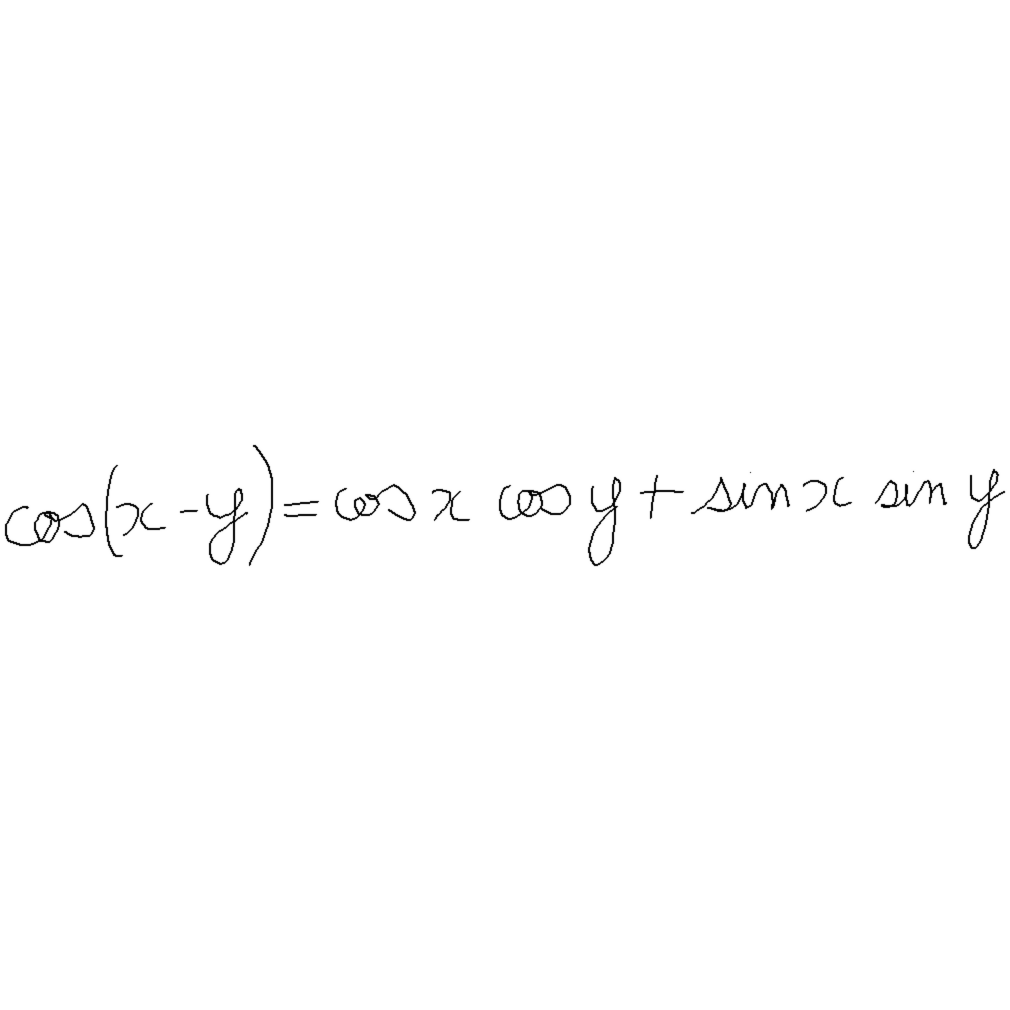 cos(x-y)=cos x cos y + sin x sin y